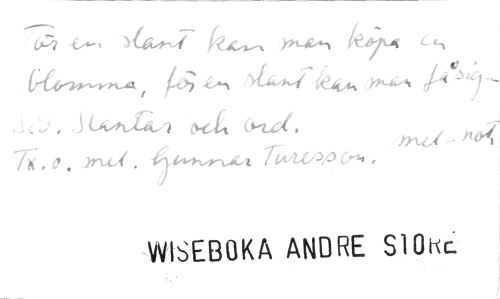 För en slant kan man köpa en
blomma, för en slant kan man få sig-
Slantar och ord.
Tx. o. mel. Gunnar Turesson. mel-not.
WISEBOKA ANDRE STORE